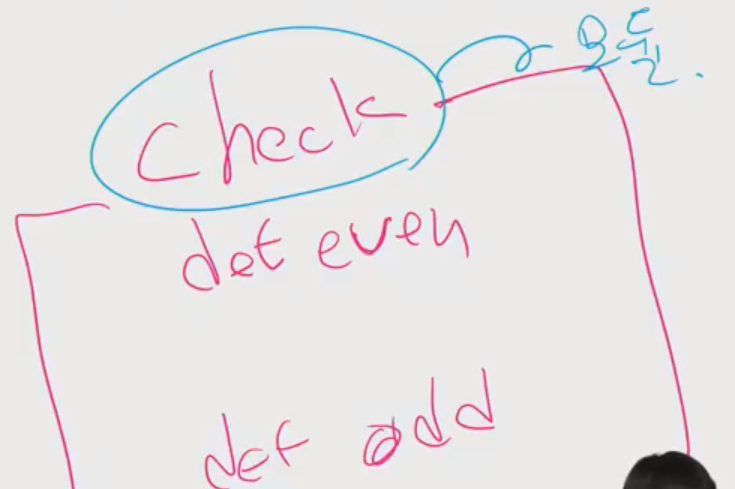 check
모듈.
def even
def add